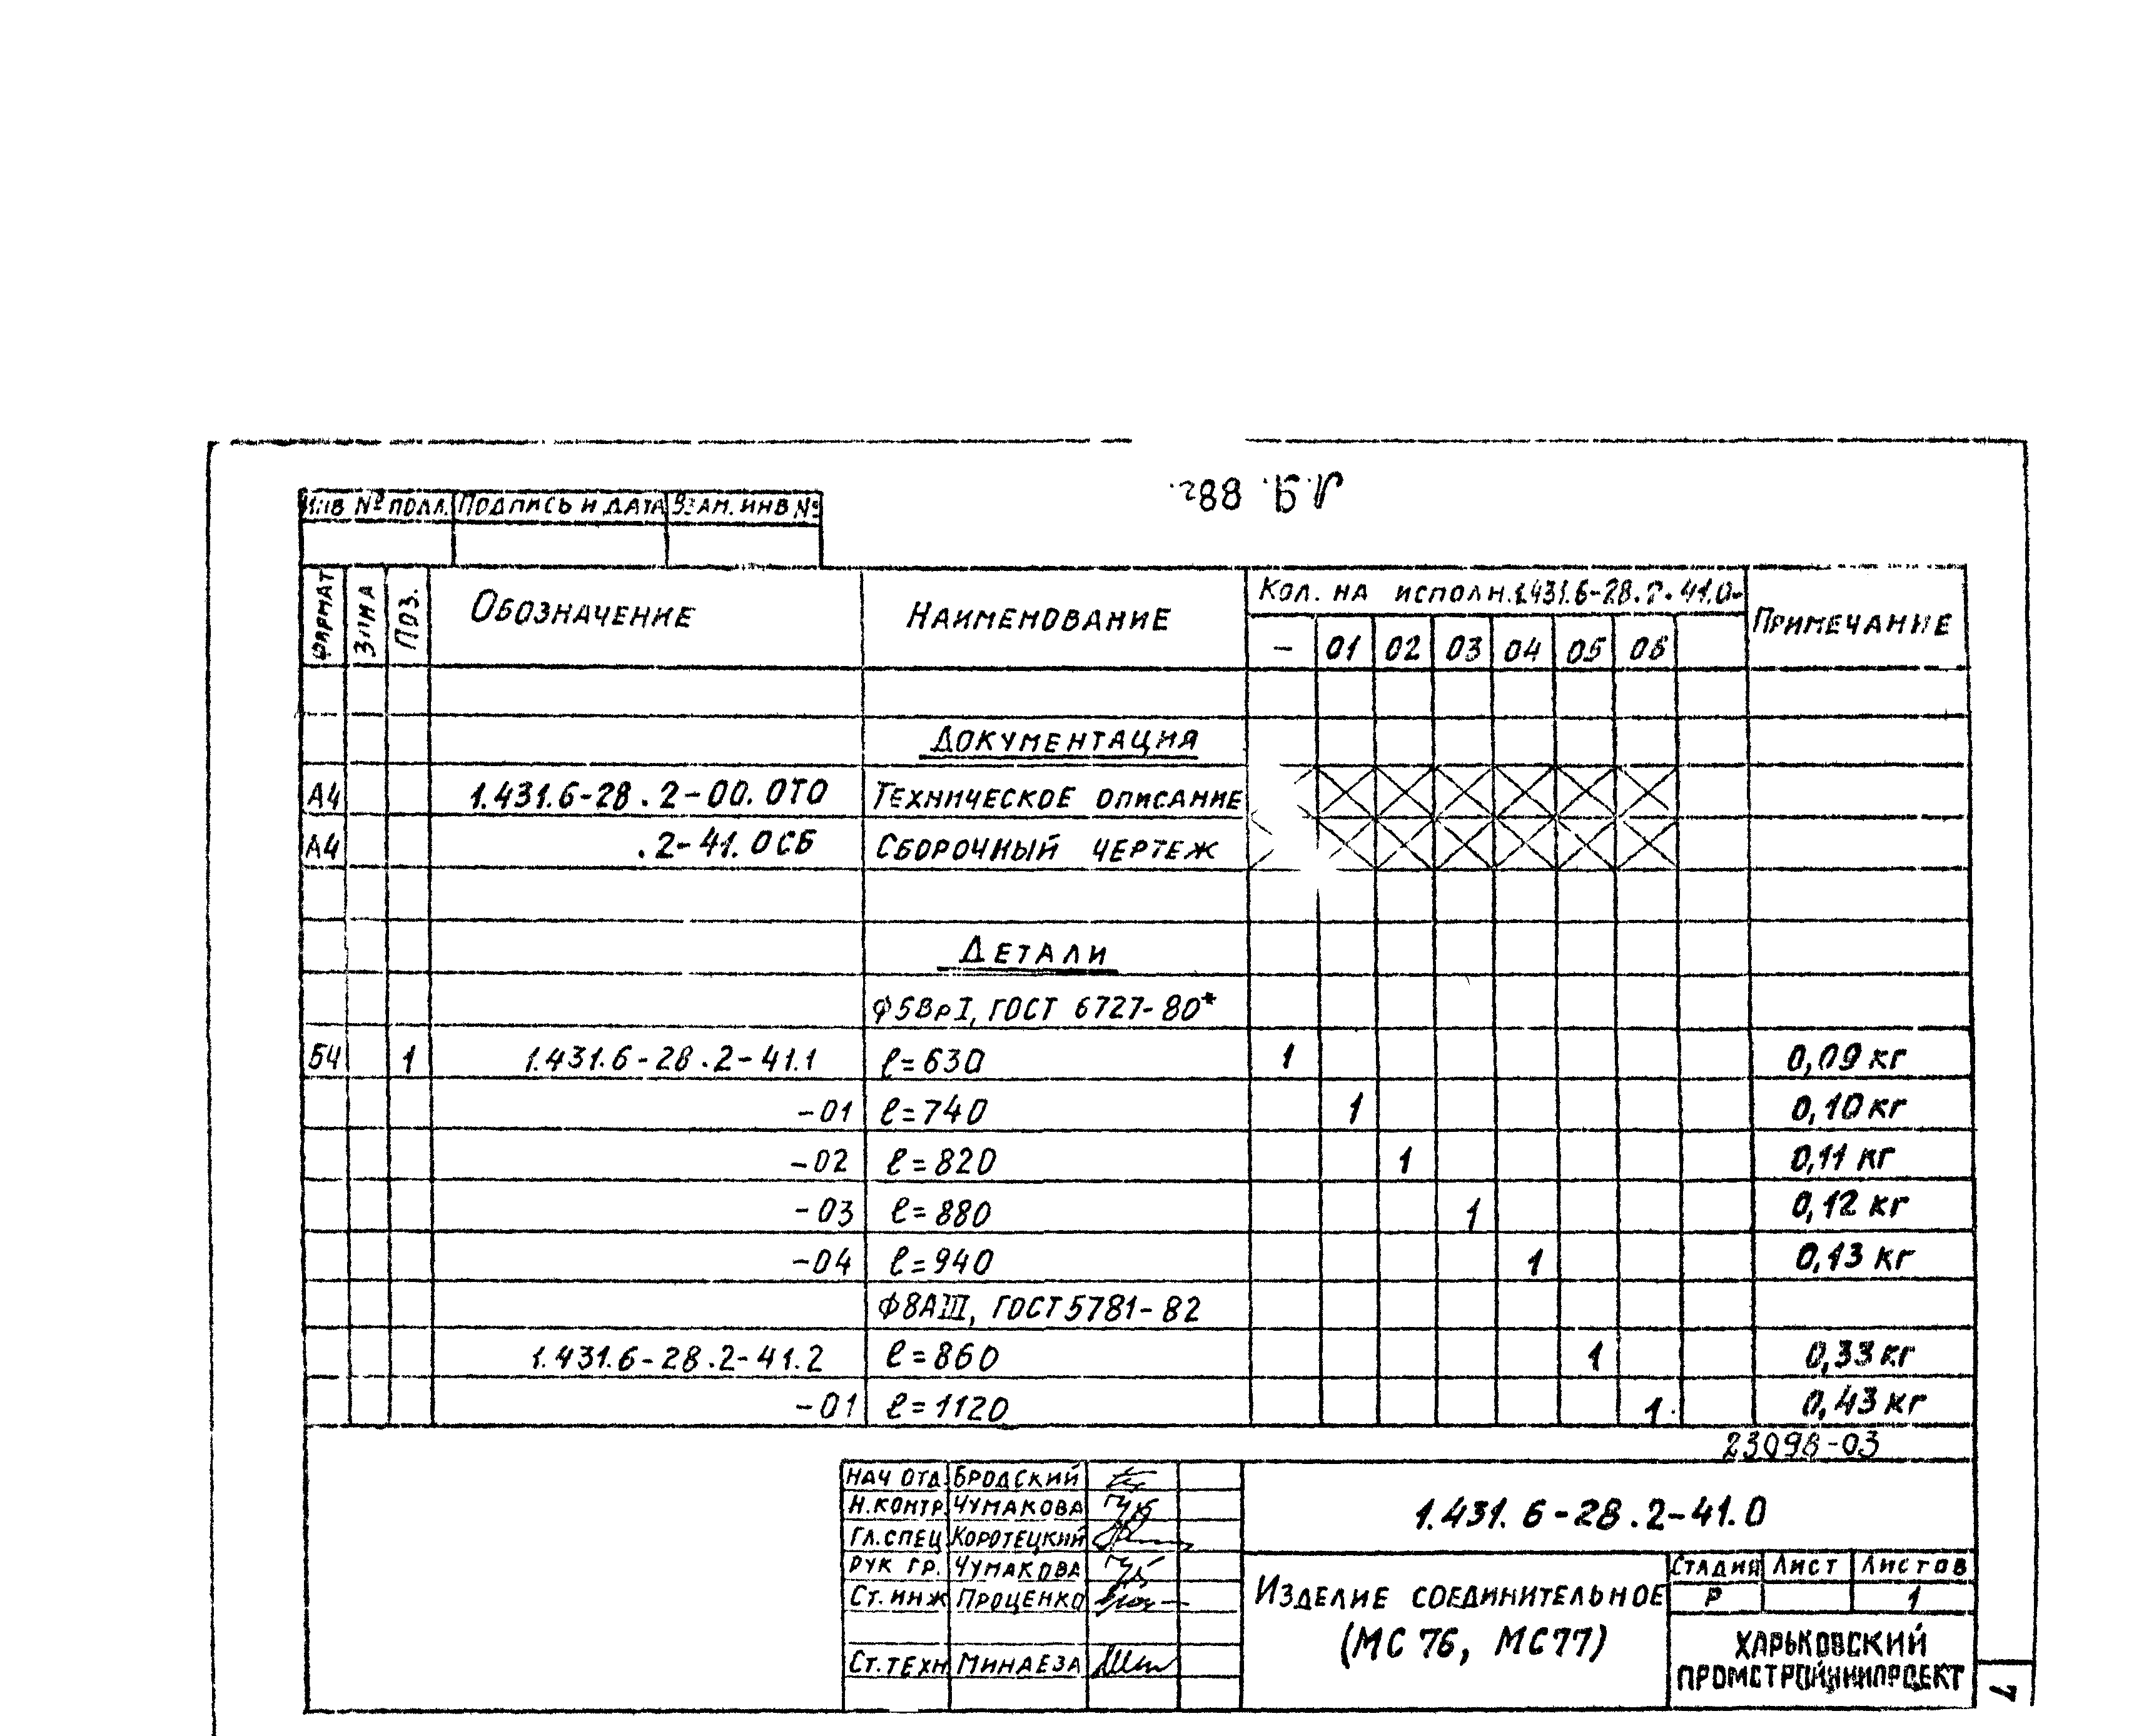 Л.Я. 88г.
Инв № подл. Подпись и дата Взам. инв №
Формат Зона Поз. Обозначение Наименование Кол. на исполн. 1.431.6-28.2.41.0- Примечание
– 01 02 03 04 05 06
Документация
А4 1.431.6-28.2-00.0ТО Техническое описание
А4 .2-41.0СБ Сборочный чертеж
Детали
ф5ВрI, ГОСТ 6727-80*
Б4 1 1.431.6-28.2-41.1 ℓ=630 1 0,09 кг
-01 ℓ=740 1 0,10 кг
-02 ℓ=820 1 0,11 кг
-03 ℓ=880 1 0,12 кг
-04 ℓ=940 1 0,13 кг
Ф8АIII, ГОСТ 5781-82
1.431.6-28.2-41.2 ℓ=860 1 0,33 кг
-01 ℓ=1120 1 0,43 кг
23098-03
Нач отд. Бродский
Н.контр. Чумакова
Гл.спец Коротецкий
Рук гр. Чумакова
Ст.инж Проценко
Ст.техн Минаева
1.431.6-28.2-41.0
Изделие соединительное
(МС 76, МС 77)
Стадия Лист Листов
Р 1
Харьковский
Промстройниипроект
7